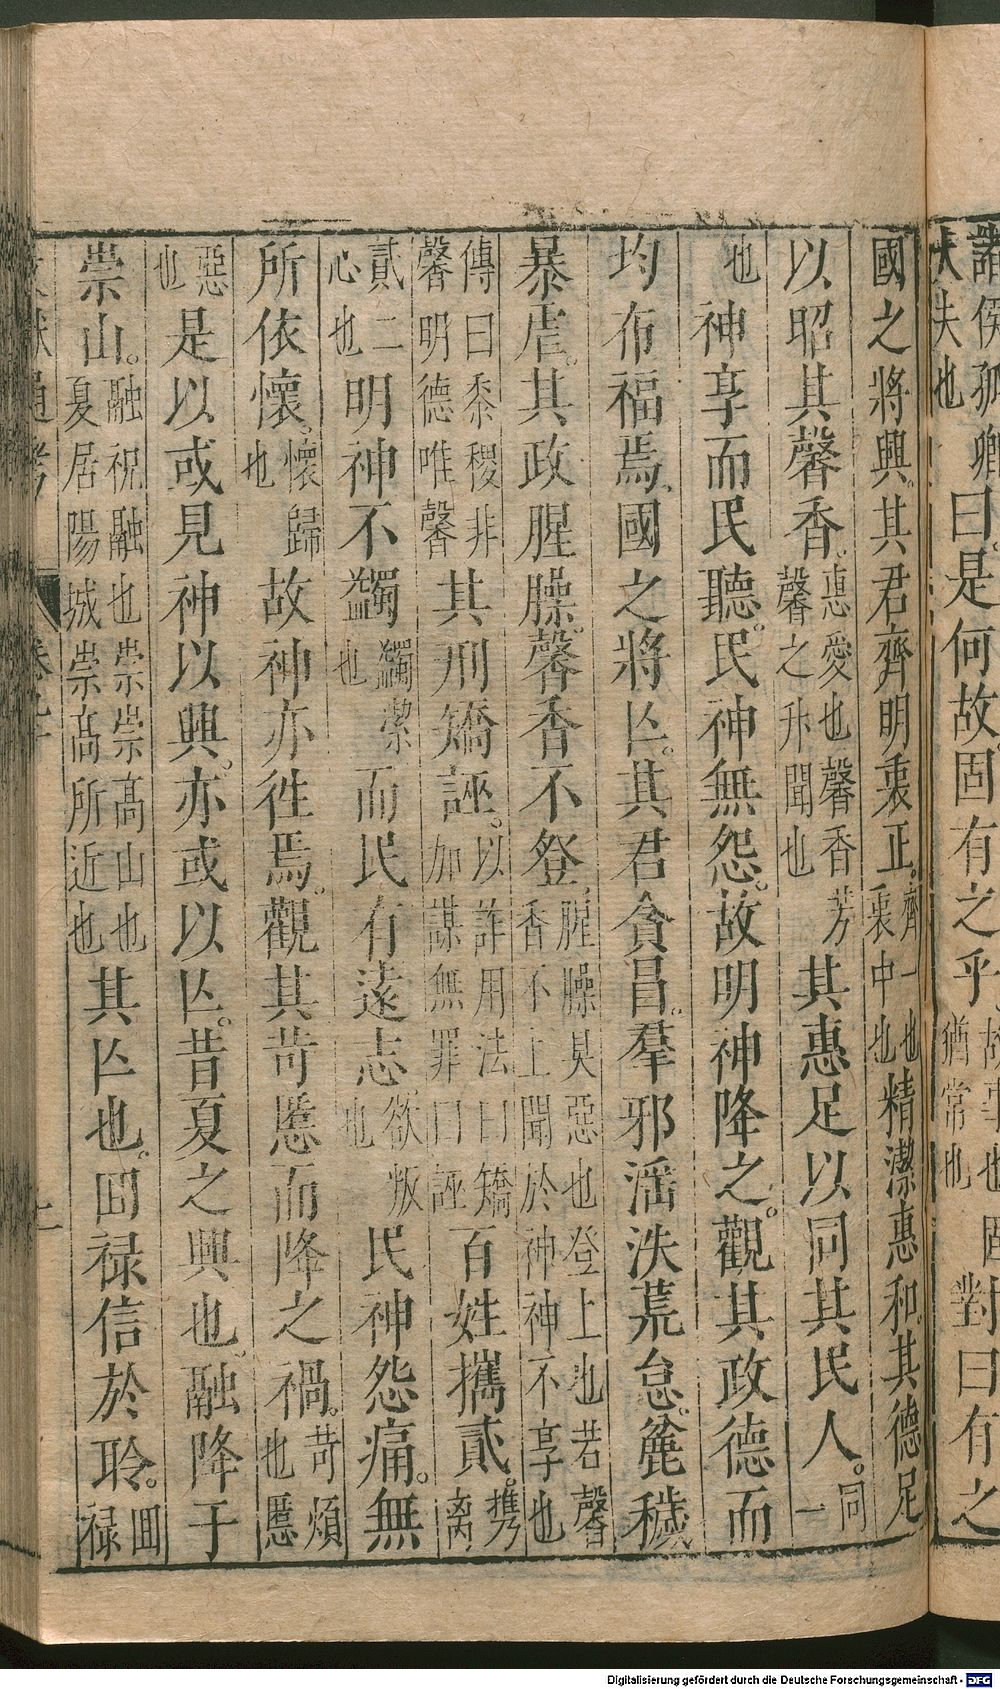 諸侯孤卿曰是何故固有之乎故事也固猶常也對曰有之
大夫也
國之將興其君齊明衷正。齊一也衷中也精潔惠和其德足
以昭其馨香。惠愛也馨香芳馨之升聞也其惠足以同其民人。同一
也神享而民聽。民神無怨。故明神降之。觀其政德而
均布福焉。國之將亾。其君貪冒。羣邪滛泆荒怠。麄穢
暴虐。其政腥臊。馨香不登腥臊臭惡也登上也若馨香不上聞於神神不享也
傳曰黍稷非馨明德唯馨其刑矯誣。以詐用法曰矯加謀無罪曰誣百姓攜貳。攜离
貳二心也明神不蠲蠲潔也而民有遠志欲叛也民神怨痛。無
所依懷。懷歸也故神亦徃焉。觀其苛慝而降之禍。苛煩也慝
惡也是以或見神以興。亦或以亾。昔夏之興也融降于
崇山。融祝融也崇崇高山也夏居陽城崇高所近也其亾也。囬禄信於聆。囬禄
文獻通考 卷九十 二
Digitalisierung gefördert durch die Deutsche Forschungsgemeinschaft - DFG